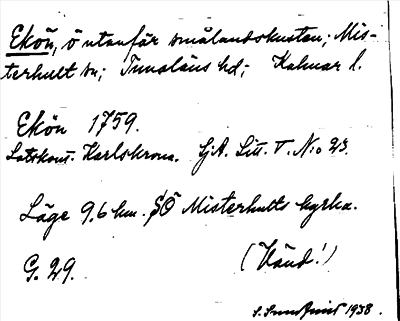 Ekön, ö utanför smålandskusten; Mis-
terhult sn; Tunaläns hd; Kalmar l.
Ekön 1759.
Lotskont. Karlskrona. GA. Litt. T. No 23.
Läge 9.6 km. SÖ Misterhults kyrka.
G. 29. (Vänd!)
S. 1938.